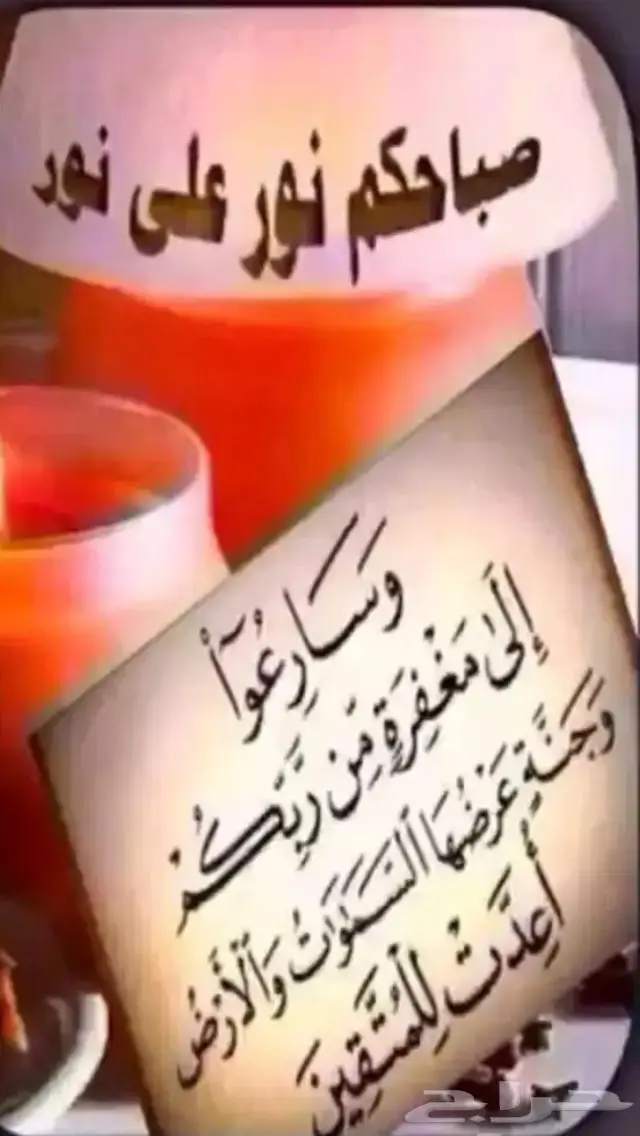 صباحكم نور على نور
وَسَارِعُوٓا۟
إِلَىٰ مَغْفِرَةٍ مِّن رَّبِّكُمْ
وَجَنَّةٍ عَرْضُهَا ٱلسَّمَٰوَٰتُ وَٱلْأَرْضُ
أُعِدَّتْ لِلْمُتَّقِينَ
حراج